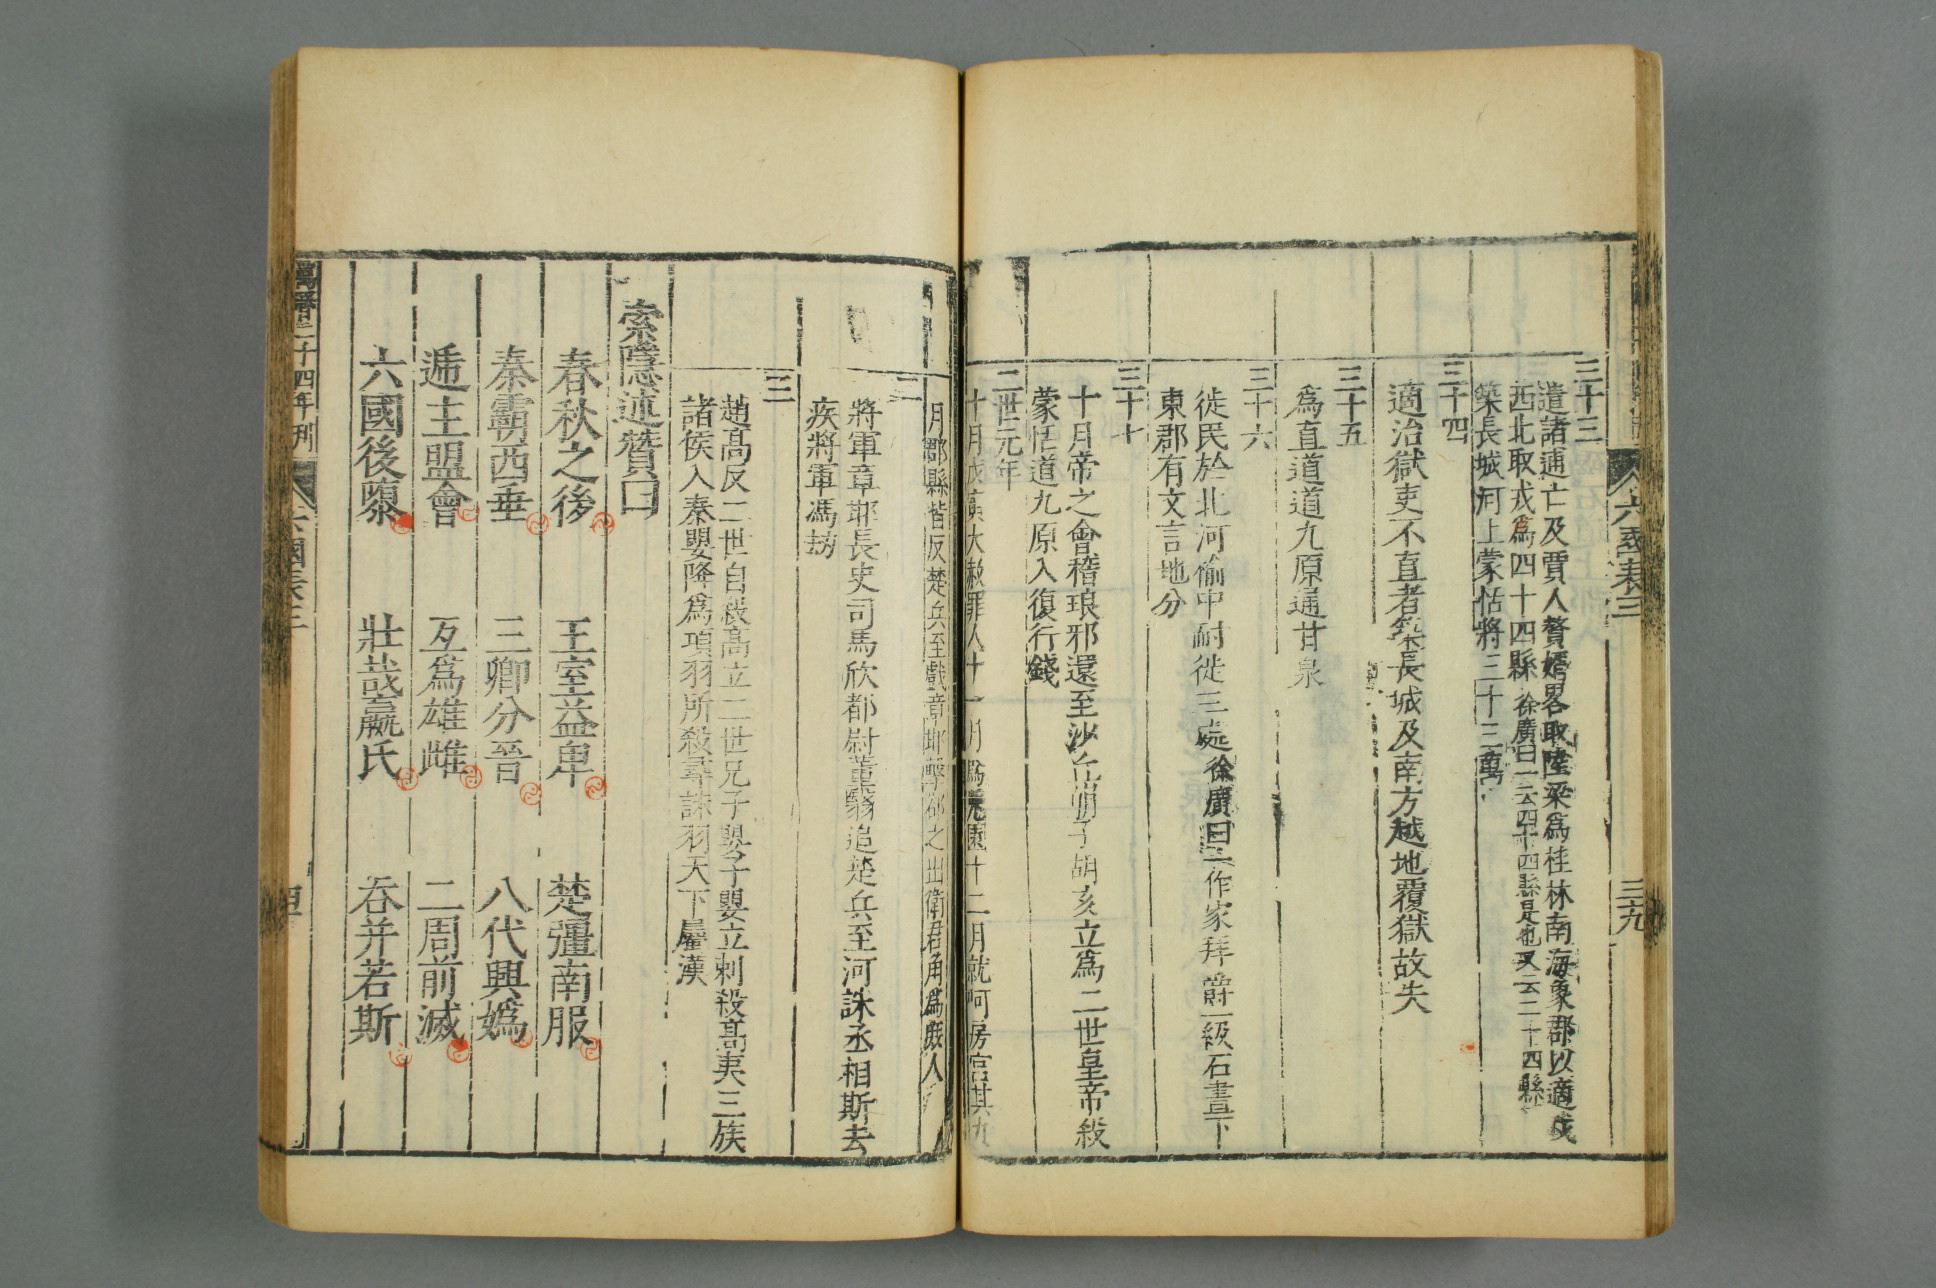 六國表三
三九
三十三
遣諸逋亡及賈人贅壻畧取陸梁爲桂林南海象郡以適戍
西北取戎爲四十四縣 徐廣曰一云四十四縣是也又云二十四縣
築長城河上蒙恬將三十三萬
三十四
適治獄吏不直者築長城及南方越地覆獄故失
三十五
爲直道道九原通甘泉
三十六
徙民於北河偷中耐徙三處徐廣曰一作家拜爵一級石晝下
東郡有文言地分
三十七
十月帝之會稽琅邪還至沙丘崩子胡亥立爲二世皇帝殺
蒙恬道九原入復行錢
二世元年
十月戊寅大赦罪人十一月爲兎園十二月就阿房宮其九
月郡縣皆反楚兵至戲章邯擊卻之出衛君角爲庶人
二
將軍章邯長史司馬欣都尉董翳追楚兵至河誅丞相斯去
疾將軍馮劫
三
趙高反二世自殺高立二世兄子嬰子嬰立刺殺高夷三族
諸侯入秦嬰降爲項羽所殺尋誅羽天下屬漢
索隱述贊曰
春秋之後 王室益卑 楚彊南服
秦霸西垂 三卿分晉 八代興嬀
遞主盟會 互爲雄雌 二周前滅
六國後隳 壯哉嬴氏 吞并若斯
萬曆二十四年刊
六國表三